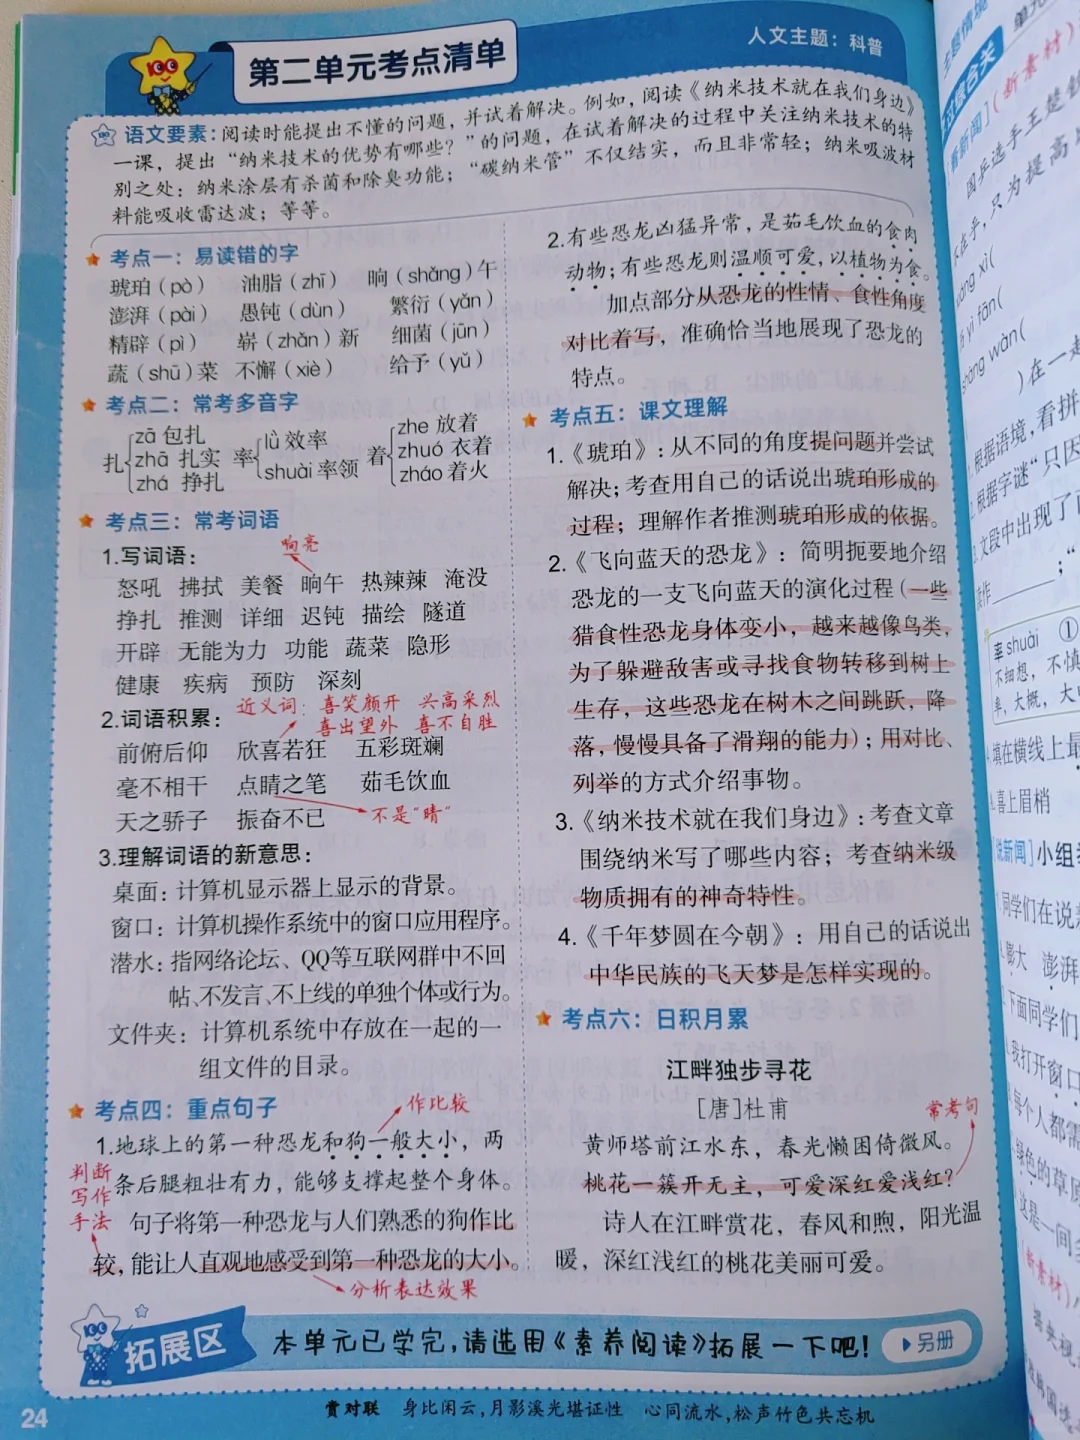 第二单元考点清单
人文主题：科普
语文要素：阅读时能提出不懂的问题，并试着解决。例如，阅读《纳米技术就在我们身边》
一课，提出“纳米技术的优势有哪些？”的问题，在试着解决的过程中关注纳米技术的特
别之处：纳米涂层有杀菌和除臭功能；“碳纳米管”不仅结实，而且非常轻；纳米吸波材
料能吸收雷达波；等等。
考点一：易读错的字
琥珀（pò） 油脂（zhī） 晌（shǎng）午
澎湃（pài） 愚钝（dùn） 繁衍（yǎn）
精辟（pì） 崭（zhǎn）新 细菌（jūn）
蔬（shū）菜 不懈（xiè） 给予（yǔ）
考点二：常考多音字
扎 zā 包扎 zhā 扎实 zhá 挣扎
率 lǜ 效率 shuài 率领
着 zhe 放着 zhuó 衣着 zháo 着火
考点三：常考词语
1.写词语：
响亮
怒吼 拂拭 美餐 晌午 热辣辣 淹没
挣扎 推测 详细 迟钝 描绘 隧道
开辟 无能为力 功能 蔬菜 隐形
健康 疾病 预防 深刻
近义词：喜笑颜开 兴高采烈
喜出望外 喜不自胜
2.词语积累：
前俯后仰 欣喜若狂 五彩斑斓
毫不相干 点睛之笔 茹毛饮血
天之骄子 振奋不已
不是“晴”
3.理解词语的新意思：
桌面：计算机显示器上显示的背景。
窗口：计算机操作系统中的窗口应用程序。
潜水：指网络论坛、QQ等互联网群中不回
帖、不发言、不上线的单独个体或行为。
文件夹：计算机系统中存放在一起的一
组文件的目录。
考点四：重点句子
作比较
1.地球上的第一种恐龙和狗一般大小，两
条后腿粗壮有力，能够支撑起整个身体。
判断
写作
手法
句子将第一种恐龙与人们熟悉的狗作比
较，能让人直观地感受到第一种恐龙的大小。
分析表达效果
2.有些恐龙凶猛异常，是茹毛饮血的食肉
动物；有些恐龙则温顺可爱，以植物为食。
加点部分从恐龙的性情、食性角度
对比着写，准确恰当地展现了恐龙的
特点。
考点五：课文理解
1.《琥珀》：从不同的角度提问题并尝试
解决；考查用自己的话说出琥珀形成的
过程；理解作者推测琥珀形成的依据。
2.《飞向蓝天的恐龙》：简明扼要地介绍
恐龙的一支飞向蓝天的演化过程（一些
猎食性恐龙身体变小，越来越像鸟类，
为了躲避敌害或寻找食物转移到树上
生存，这些恐龙在树木之间跳跃，降
落，慢慢具备了滑翔的能力）；用对比、
列举的方式介绍事物。
3.《纳米技术就在我们身边》：考查文章
围绕纳米写了哪些内容；考查纳米级
物质拥有的神奇特性。
4.《千年梦圆在今朝》：用自己的话说出
中华民族的飞天梦是怎样实现的。
考点六：日积月累
江畔独步寻花
[唐]杜甫
常考句
黄师塔前江水东，春光懒困倚微风。
桃花一簇开无主，可爱深红爱浅红？
诗人在江畔赏花，春风和煦，阳光温
暖，深红浅红的桃花美丽可爱。
拓展区
本单元已学完，请选用《素养阅读》拓展一下吧！
另册
24
赏对联 身比闲云，月影溪光堪证性 心同流水，松声竹色共忘机
国乒选手王楚钦
只为提高
yì fān(
shàng wàn(
)在一起
根据语境，看拼
根据字谜“只因
文段中出现了
率 shuài ①
不细想，不慎
率，大概，大
填在横线上最
A.喜上眉梢
[说新闻]小组
同学们在说
膨大 澎湃
下面同学们
我打开窗口
每个人都需
绿色的草原
这是一间
(新素材)